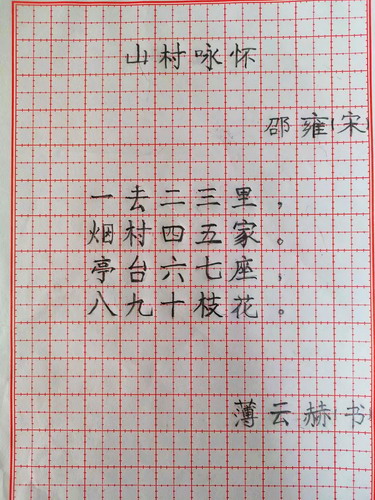 山村咏怀
邵雍(宋)
一去二三里，
烟村四五家。
亭台六七座，
八九十枝花。
薄云赫书